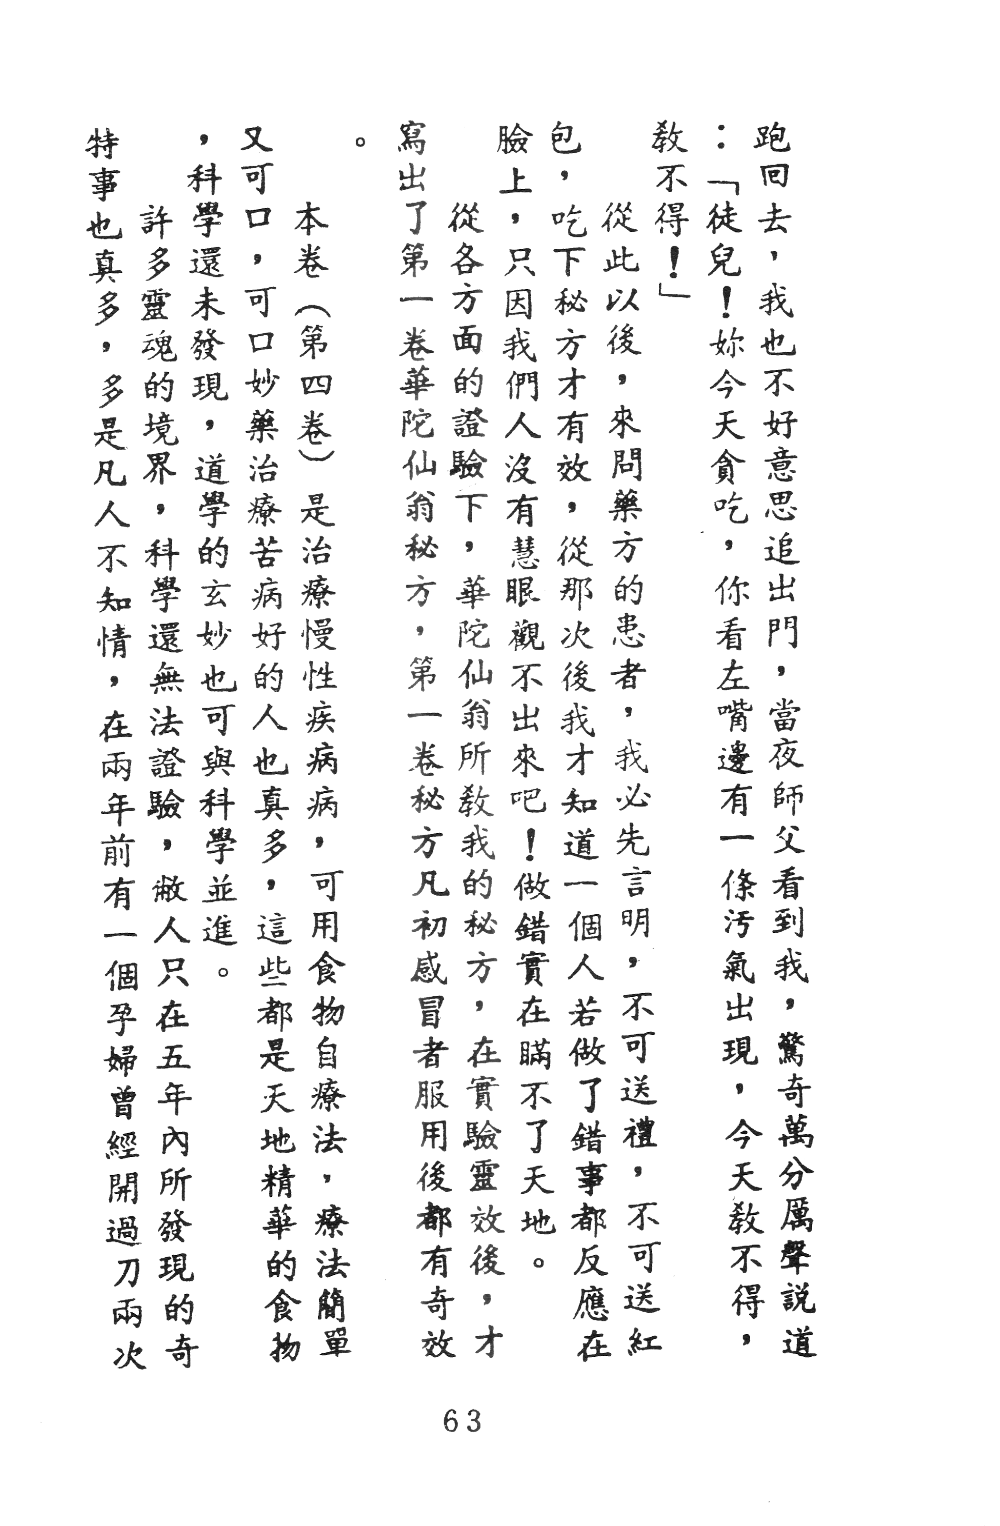 跑回去，我也不好意思追出門，當夜師父看到我，驚奇萬分厲聲説道
：「徒兒！妳今天貪吃，你看左嘴邊有一條污氣出現，今天教不得，
教不得！」
從此以後，來問藥方的患者，我必先言明，不可送禮，不可送紅
包，吃下秘方才有效，從那次後我才知道一個人若做了錯事都反應在
臉上，只因我們人沒有慧眼觀不出來吧！做錯實在瞞不了天地。
從各方面的證驗下，華陀仙翁所教我的秘方，在實驗靈效後，才
寫出了第一卷華陀仙翁秘方，第一卷秘方凡初感冒者服用後都有奇效
。
本卷（第四卷）是治療慢性疾病病，可用食物自療法，療法簡單
又可口，可口妙藥治療苦病好的人也真多，這些都是天地精華的食物
，科學還未發現，道學的玄妙也可與科學並進。
許多靈魂的境界，科學還無法證驗，敝人只在五年內所發現的奇
特事也真多，多是凡人不知情，在兩年前有一個孕婦曾經開過刀兩次
63